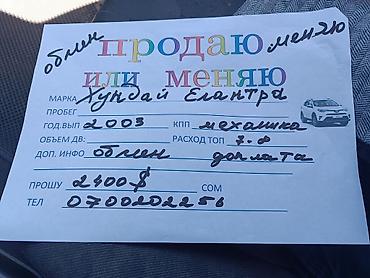 обмен продаю меняю
или меняю
МАРКА Хундай Елантра
ПРОБЕГ
ГОД.ВЫП 2003 КПП механика
ОБЪЕМ ДВ: РАСХОД ТОП 7-8
ДОП. ИНФО обмен доплата
ПРОШУ 2400$ СОМ
ТЕЛ 0700202256